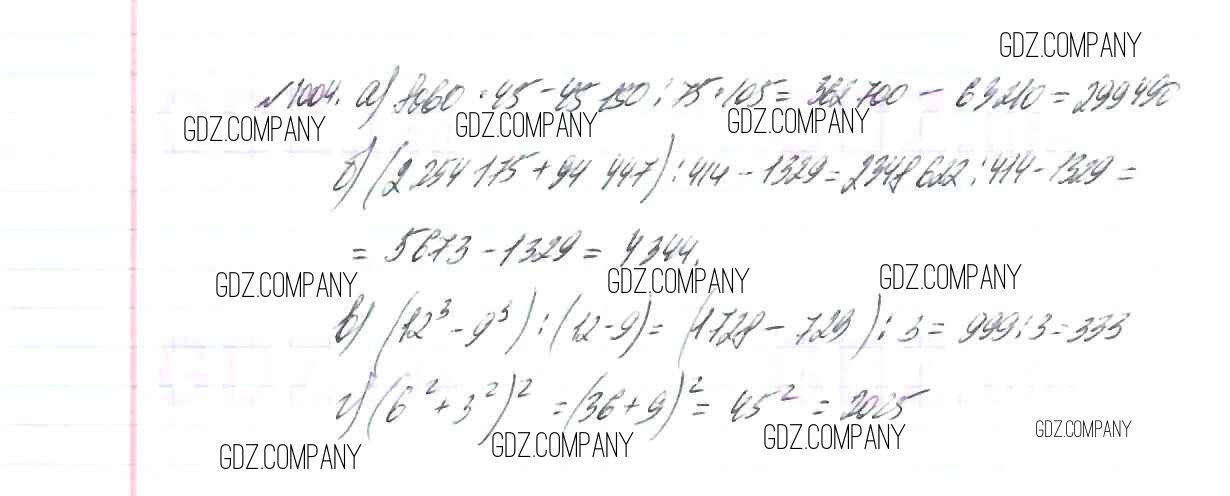 GDZ.COMPANY
№1004. а) 8060 · 45 - 45 150 : 75 · 105 = 362 700 - 63210 = 299490
GDZ.COMPANY GDZ.COMPANY GDZ.COMPANY
б) (2 254 175 + 94 447) : 414 - 1329 = 2348 622 : 414 - 1329 =
= 5673 - 1329 = 4344.
GDZ.COMPANY GDZ.COMPANY GDZ.COMPANY
в) (12³ - 9³) : (12 - 9) = (1728 - 729) : 3 = 999 : 3 = 333
г) (6² + 3²)² = (36 + 9)² = 45² = 2025
GDZ.COMPANY GDZ.COMPANY GDZ.COMPANY GDZ.COMPANY